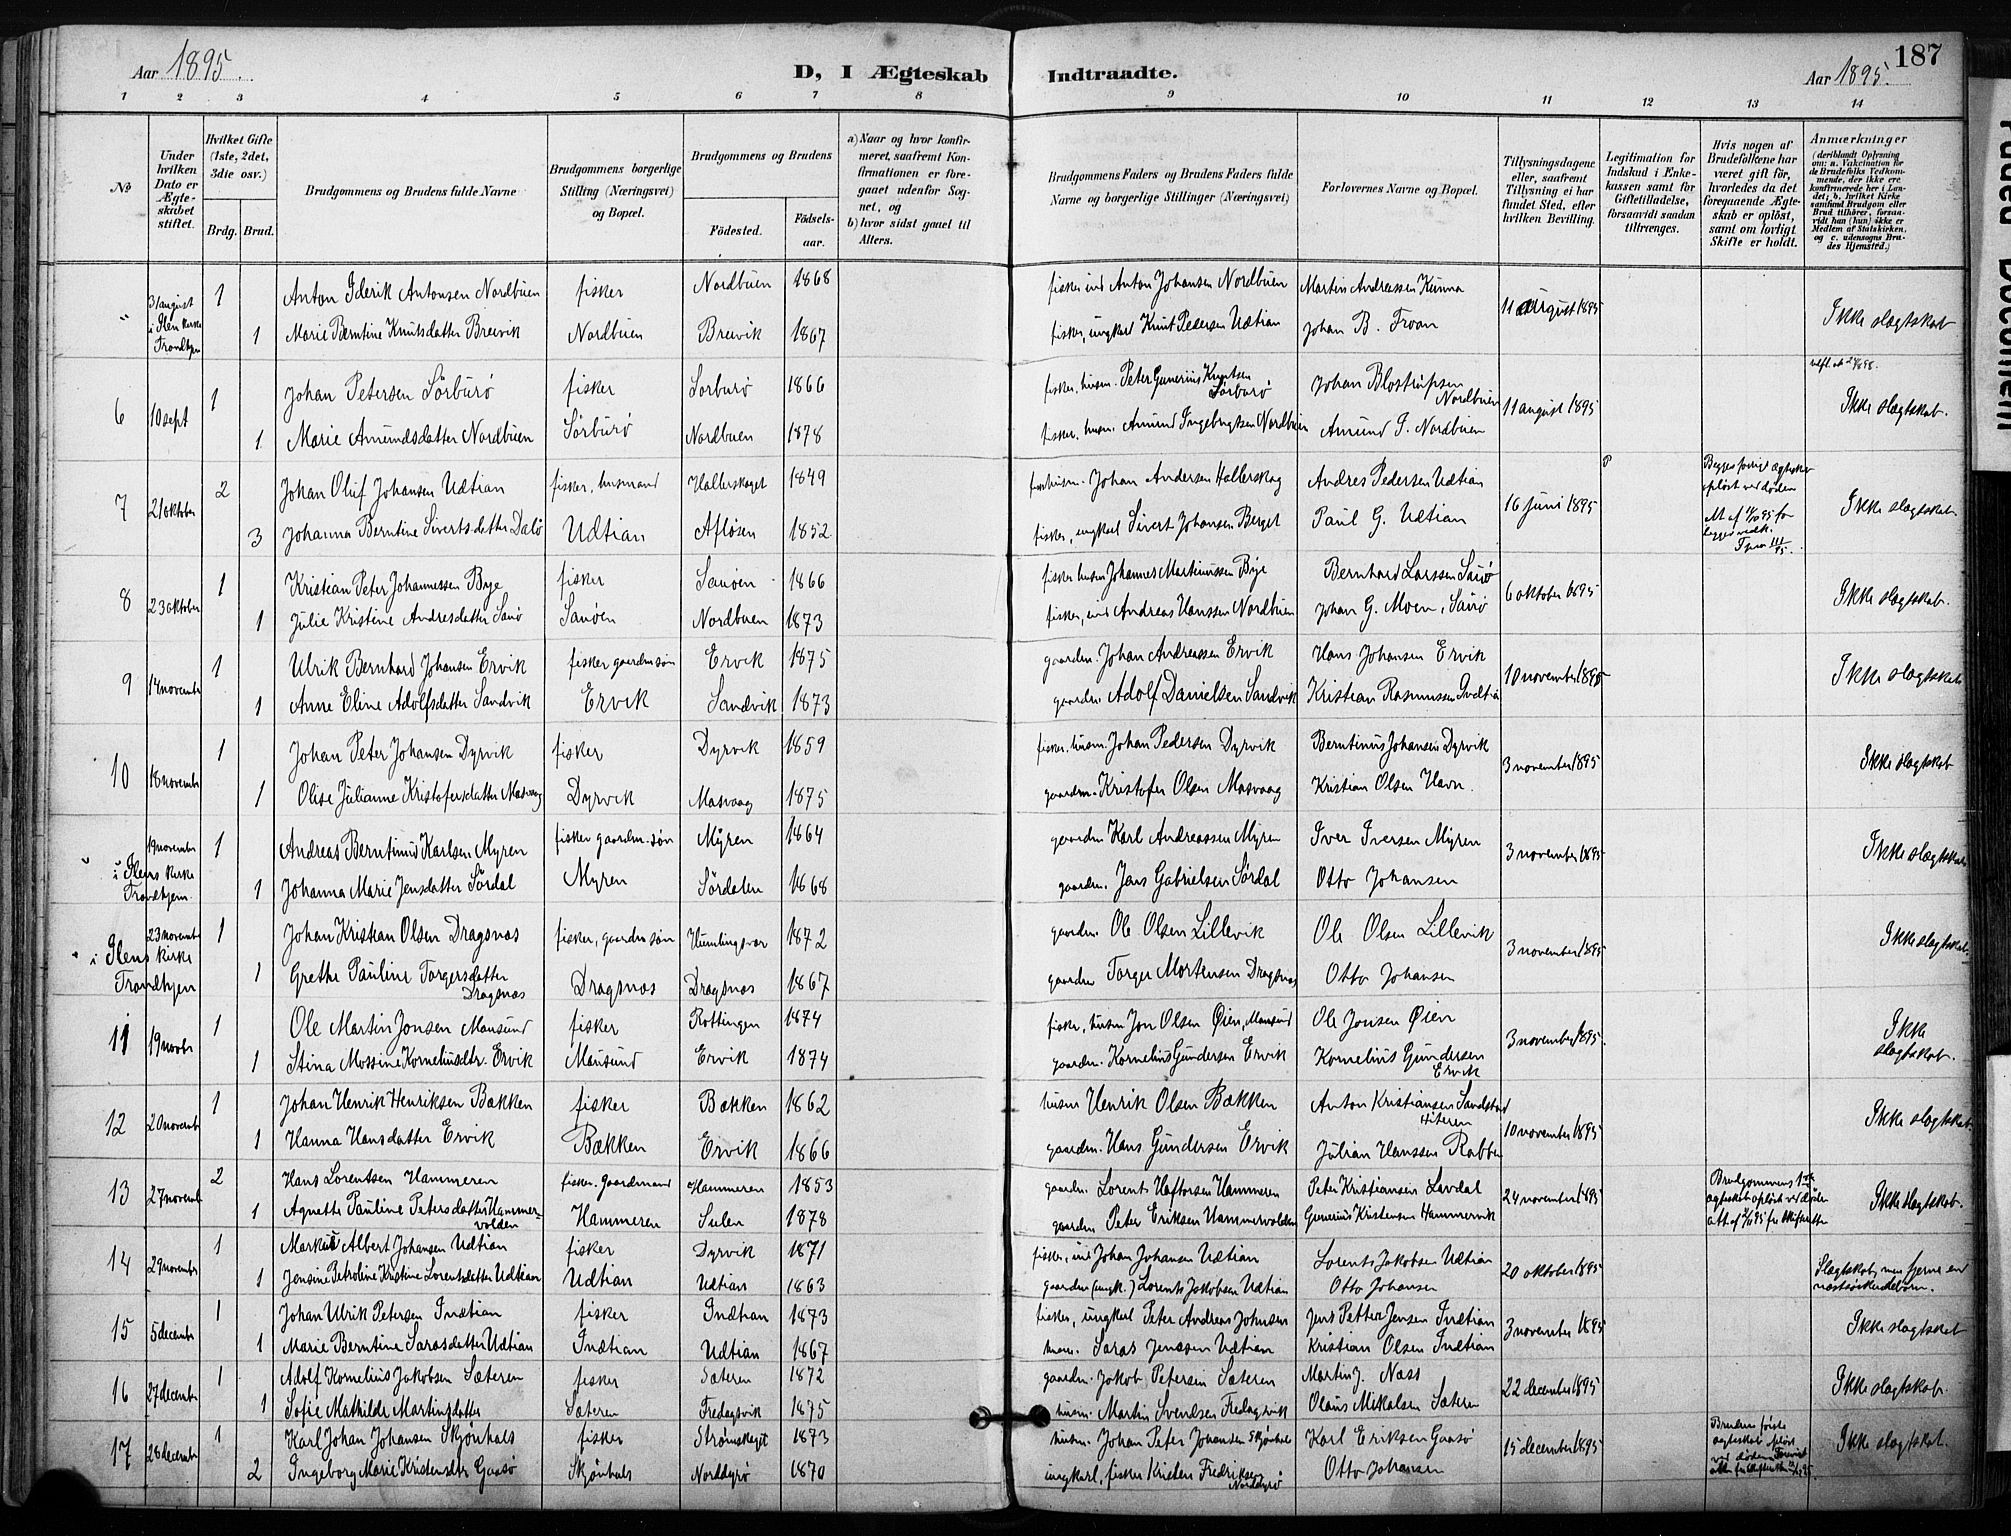 Aar 1895. D, I Ægteskab Indtraadte. Aar 1895. 187
1 2 3 4 5 6 7 8 9 10 11 12 13 14
No
Under hvilken Dato er Ægteskabet stiftet.
Hvilket Gifte (1ste, 2det, 3die osv.)
Brdg. Brud.
Brudgommens og Brudens fulde Navne
Brudgommens borgerlige Stilling (Næringsvei) og Bopæl.
Brudgommens og Brudens
Födested. Födselsaar.
a) Naar og hvor konfirmeret, saafremt Konfirmationen er foregaaet udenfor Sognet, og
b) hvor sidst gaaet til Alters.
Brudgommens Faders og Brudens Faders fulde Navne og borgerlige Stillinger (Næringsvei)
Forlovernes Navne og Bopæl.
Tillysningsdagene eller, saafremt Tillysning ei har fundet Sted, efter hvilken Bevilling.
Legitimation for Indskud i Enkekassen samt for Giftetilladelse, forsaavidt saadan tiltrænges.
Hvis nogen af Brudefolkene har været gift för, hvorledes da det foregaaende Ægteskab er oplöst, samt om lovligt Skifte er holdt.
Anmærkninger (deriblandt Oplysning om: a. Vakcination for de Brudefolks Vedkommende, der ikke ere konfirmerede her i Landet; b. hvilket Kirkesamfund Brudgom eller Brud tilhörer, forsaavidt han (hun) ikke er Medlem af Statskirken, og c. udensogns Brudes Hjemsted.)
" 31 august i Ilen kirke Trondhjem 1 Anton Iderik Antonsen Nordbuen fisker Nordbuen 1868 fisker ind Anton Johansen Nordbuen Martin Andreassen Kunna 11 august 1895 Ikke slægtskab
1 Marie Berntine Knutsdatter Breivik Nordbuen Breivik 1867 fisker, ungkarl Knut Pedersen Udtian Johan B. Froan
6 10 sept 1 Johan Petersen Sörburö fisker Sorburö 1866 fisker, husm. Peter Gunerius Knutsen Sörburö Johan Blostrupsen Nordbuen 11 august 1895 Ikke slægtskab.
1 Marie Amundsdatter Nordbuen Sörburö Nordbuen 1878 fisker, husm. Amund Ingebrigtsen Nordbuen Amund I. Nordbuen
7 21 oktober 2 Johan Oluf Johansen Udtian fisker, husmand Hallerskaget 1849 Johan Andersen Hallerskag Andres Pedersen Udtian 16 juni 1895 Begges forrige ægteskab opløst ved døden Ikke slægtskab.
3 Johanna Berntine Sivertsdatter Dalö Udtian Afløsen 1852 fisker, ungkarl Sivert Johansen Berget Paul G. Udtian
8 23 oktober 1 Kristian Peter Johannessen Bye fisker Sauöen 1866 fisker husm Johannes Martinussen Bye Bernhard Larssen Sauö 6 oktober 1895 Ikke slægtskab.
1 Julie Kristine Andresdatter Sauö Sauöen Nordbuen 1873 fisker, ind Andreas Hanssen Nordbuen Johan G. Moen, Sauö
9 14 novembr 1 Ulrik Bernhard Johansen Ervik fisker gaardm søn Ervik 1875 gaardm. Johan Andreassen Ervik Hans Johansen Ervik 10 november 1895 Ikke slægtskab
1 Anne Eline Adolfsdatter Sandvik Ervik Sandvik 1873 gaardm. Adolf Danielsen Sandvik Kristian Rasmussen Indtia
10 18 novembr 1 Johan Peter Johansen Dyrvik fisker Dyrvik 1859 fisker, husm. Johan Pedersen Dyrvik Berntinus Johansen Dyrvik 3 november 1895 Ikke slægtskab
1 Olise Julianne Kristofersdatter Masvaag Dyrvik Masvaag 1875 gaardm. Kristofer Olsen Masvaag Kristian Olsen Havn.
" 19 novembr i Ilens kirke Trondhjem 1 Andreas Berntinus Karlsen Myren fisker gaardm. søn Myren 1864 gaardm Karl Andreassen Myren Iver Iversen Myren 3 november 1895 Ikke slægtskab
1 Johanna Marie Jensdatter Sördal Myren Sördalen 1868 gaardm. Jens Gabrielsen Sördal Otto Johansen
" 23 novembr i Ilens kirke Trondhjem 1 Johan Kristian Olsen Dragsnæs fisker, gaardm søn Humlingsvær 1872 gaardm. Ole Olsen Lillevik Ole Olsen Lillevik 3 november 1895 Ikke slægtskab.
1 Grethe Pauline Torgersdatter Dragsnæs Dragsnæs Dragsnæs 1867 gaardm Torger Mortensen Dragsnæs Otto Johansen
11 19 novbr 1 Ole Martin Jonsen Mausund fisker Rottingen 1874 fisker, husm Jon Olsen Øien, Mausund Ole Jonsen Øien 3 november 1895 Ikke slægtskab.
1 Stina Mossine Korneliusdtr. Ervik Mausund Ervik 1874 gaardm. Kornelius Gundersen Ervik Kornelius Gundersen Ervik
12 20 novembr 1 Johan Henrik Henriksen Bækken fisker Bækken 1862 husm Henrik Olsen Bækken Anton Kristiansen Sandstad Hiteren 10 november 1895 Ikke slægtskab
1 Hanna Hansdatter Ervik Bækken Ervik 1866 gaardm. Hans Gundersen Ervik Julian Hanssen Rabben
13 27 novemb 2 Hans Lorentsen Hammeren fisker. gaardmand Hammeren 1853 gaardm. Lorents Haftorsen Hammeren Peter Kristiansen Lavdal 24 november 1895 Brudgommens 1ste ægteskab opløst ved døden Ikke slægtskab.
1 Agnethe Pauline Petersdatter Hammervolden Hammeren Sulen 1878 gaardm Peter Eriksen Hammervolden Gunerius Kristensen Hammervik
14 29 november 1 Markus Albert Johansen Udtian fisker Dyrvik 1871 fisker, ind Johan Johansen Udtian Lorents Jakobsen Udtian 20 oktober 1895 Slægtskab, men fjerne end næstsøskendebørn.
1 Jensine Petroline Kristine Lorentsdatter Udtian Udtian Udtian 1863 gaardm (ungk.) Lorents Jakobsen Udtian Otto Johansen
15 5 decembr 1 Johan Ulrik Petersen Indtian fisker Indtian 1873 fisker, ungkarl Peter Andreas Johnsen Jens Petter Jensen Indtian 3 november 1895 Ikke slægtskab
1 Marie Berntine Sarasdatter Udtian Indtian Udtian 1867 husm. Saras Jenssen Udtian Kristian Olsen Indtian
16 27 decembr 1 Adolf Kornelius Jakobsen Sæteren fisker Sæteren 1872 gaardm. Jakob Petersen Sæteren Martin J. Næss 22 december 1895 Ikke slægtskab.
1 Sofie Mathilde Martinsdatter Sæteren Fredagsvik 1875 husm. Martin Svendsen Fredagsvik Olaus Mikalsen Sæteren
17 28 decembr 1 Karl Johan Johansen Skjønhals fisker Strømskaget 1873 husm. Johan Peter Johansen Skjønhals Karl Eriksen Gaasø 15 december 1895 Brudens første ægteskab opløst ved døden Ikke slægtskab.
2 Ingeborg Marie Kristensdtr Gaasø Skjønhals Norddyrø 1870 ungkarl, fisker Kristen Fredriksen Norddyrø Otto Johansen